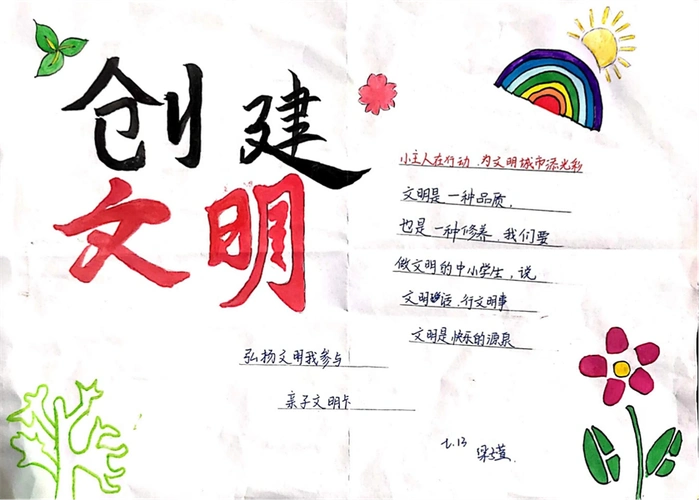 创建
文明
小主人在行动、为文明城市添光彩
文明是一种品质，
也是一种修养，我们要
做文明的中小学生，说
文明话，行文明事
文明是快乐的源泉
弘扬文明我参与
亲子文明卡